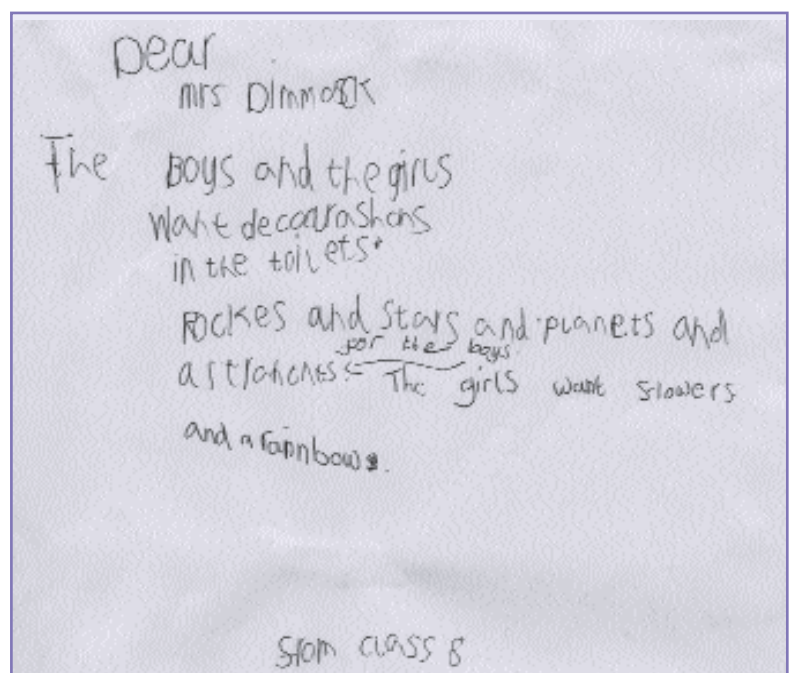 Dear
mrs Dimmock
The Boys and the girls
want decorashons
in the toilets.
Rockes and stars and planets and
for the boys.
astranonts The girls want flowers
and a rainbows.
from class 8